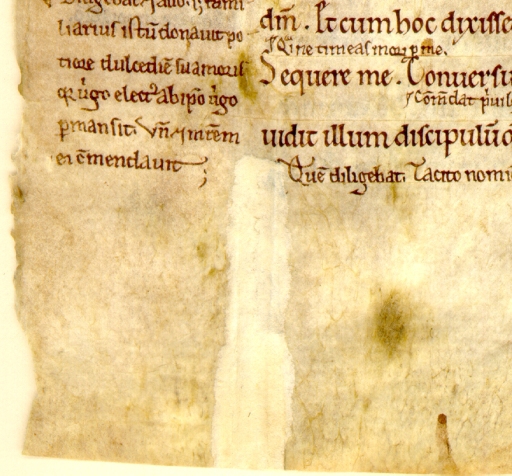 liarius istū donauit po
tiore dulcediē sui amoris
ꝙ ṽgo elect᷒ ab ip̄o ṽgo
ꝑmansit. Vn̄ ⁊ mr̄em
ei c̄mendauit ;
dm̄. Et cum hoc dixisse
s. Q ne timeas mori ꝑ me.
Sequere me. Conuersu
uidit illum discipulū
Quē diligebat. Tacito nomi